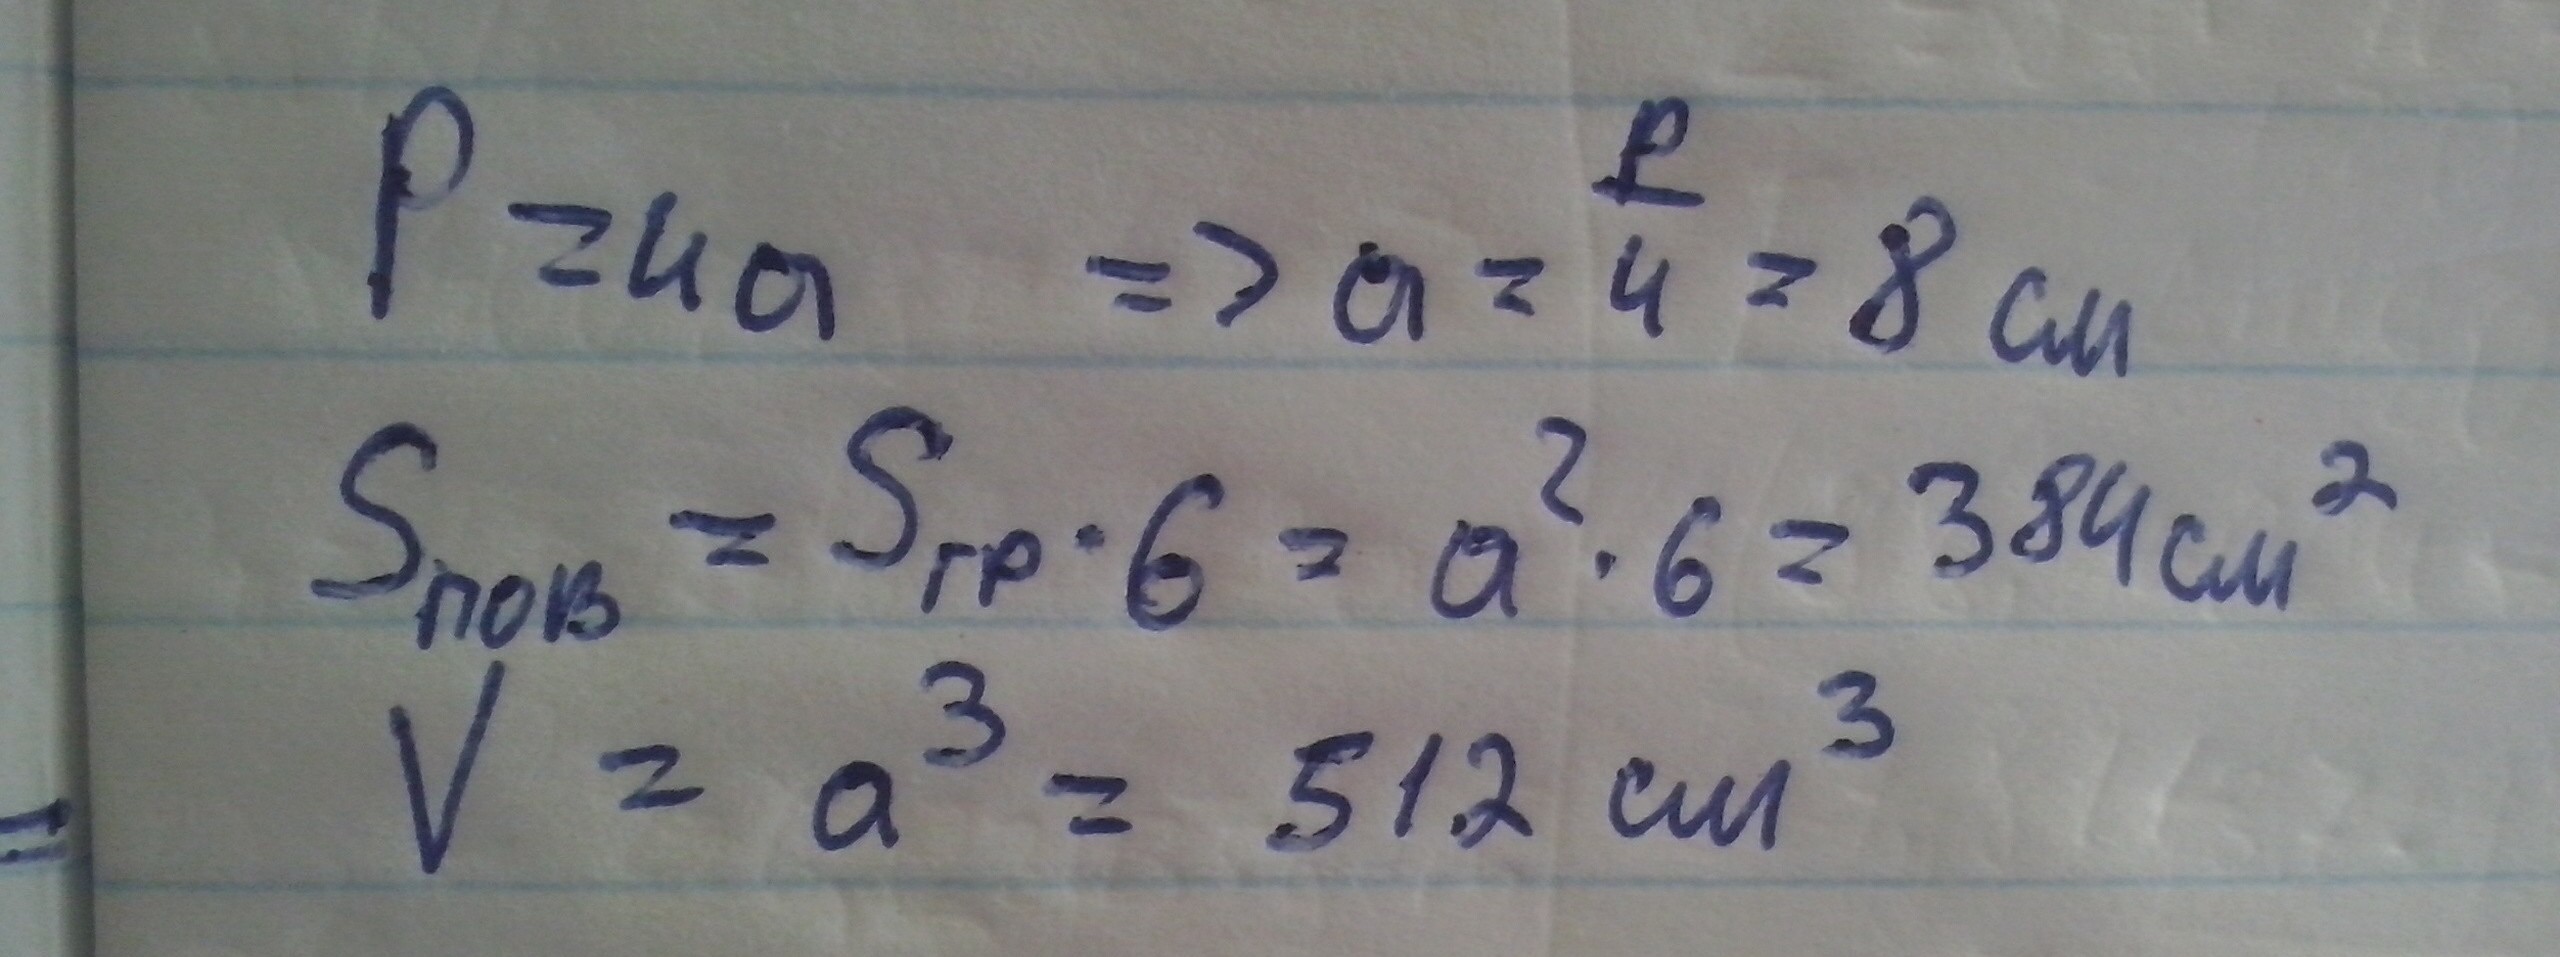 P = 4a => a = P/4 = 8 см
Sпов = Sгр · 6 = a² · 6 = 384 см²
V = a³ = 512 см³